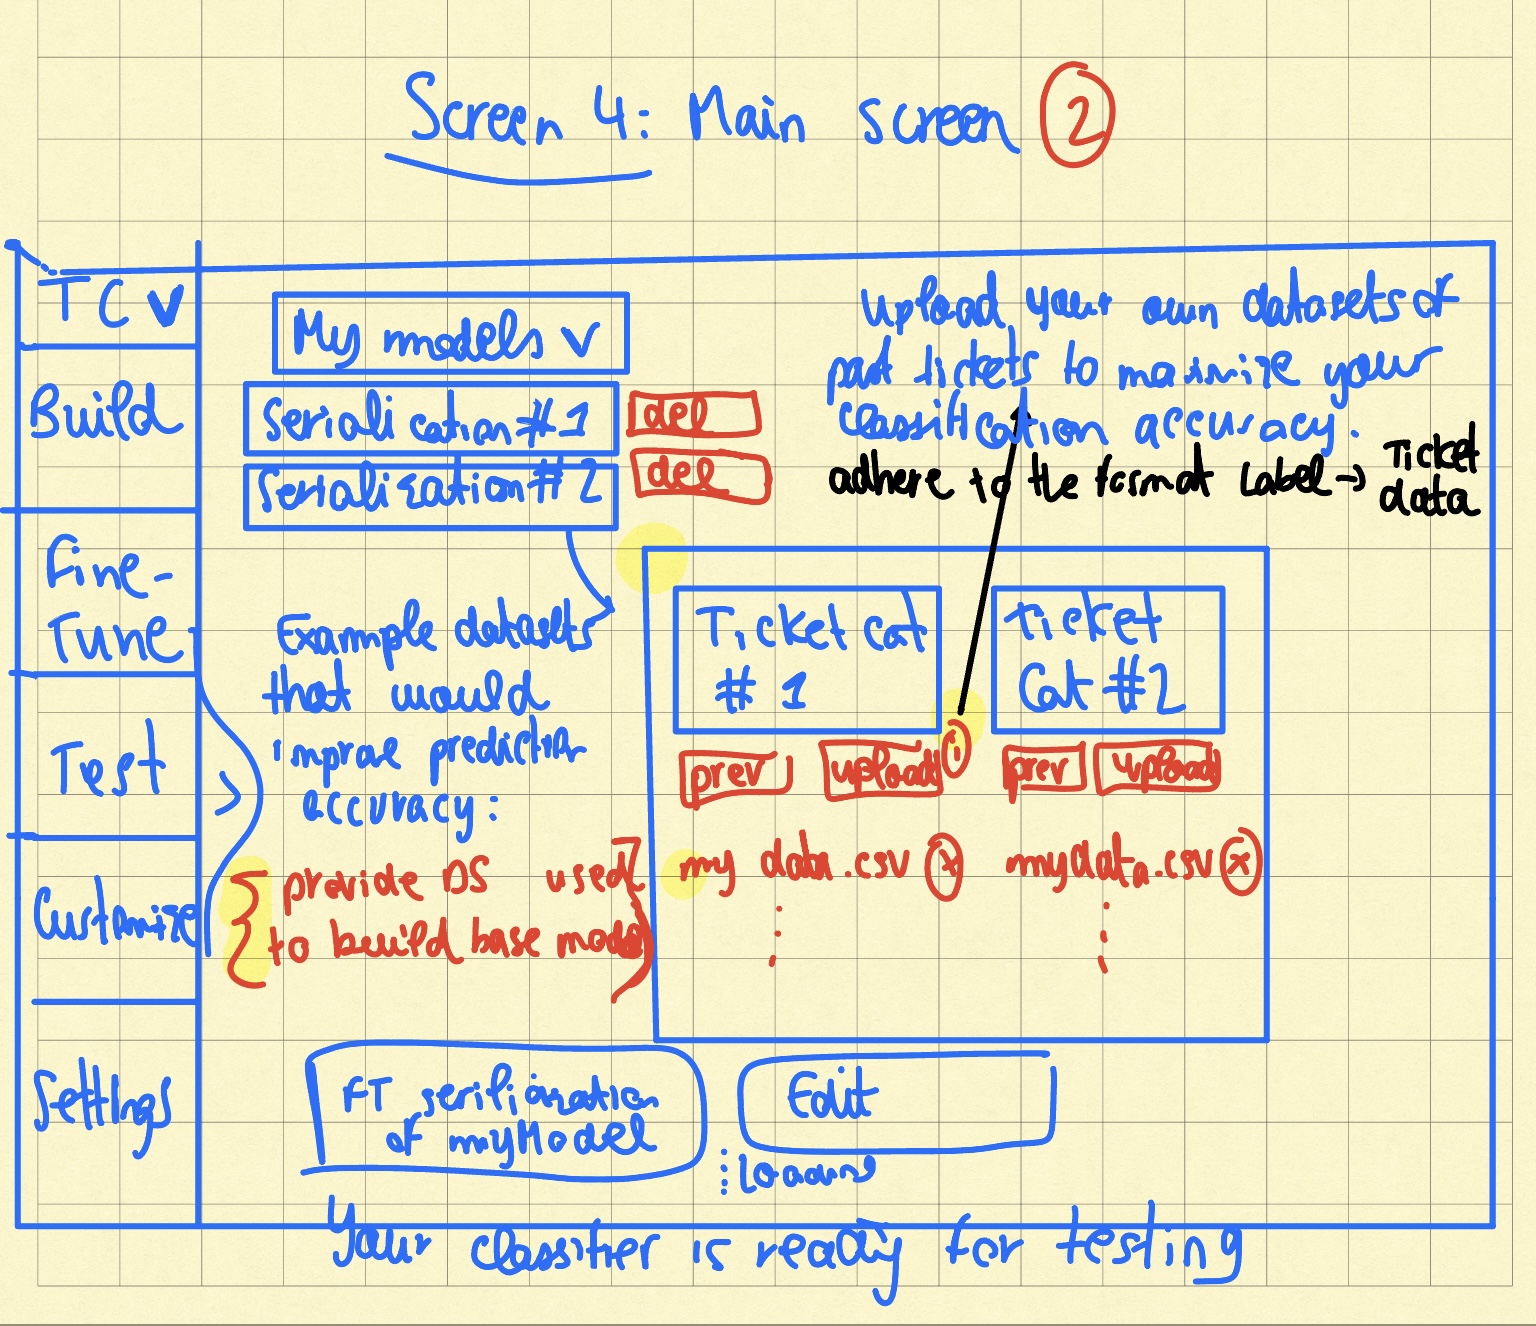 Screen 4: Main screen 2
TC V
Build
Fine-
Tune
Test
Customise
Settings
My models v
Serialication #1
del
Serialization #2
del
Upload your own datasets of
past tickets to maximize your
classification accuracy.
adhere to the format Label →
Ticket
data
Example datasets
that would
improve prediction
accuracy:
{ provide DS used
to build base model
Ticket cat
# 1
Ticket
Cat #2
prev
upload
i
prev
upload
my data.csv x
mydata.csv x
FT
of myModel
Edit
Your classifier is ready for testing